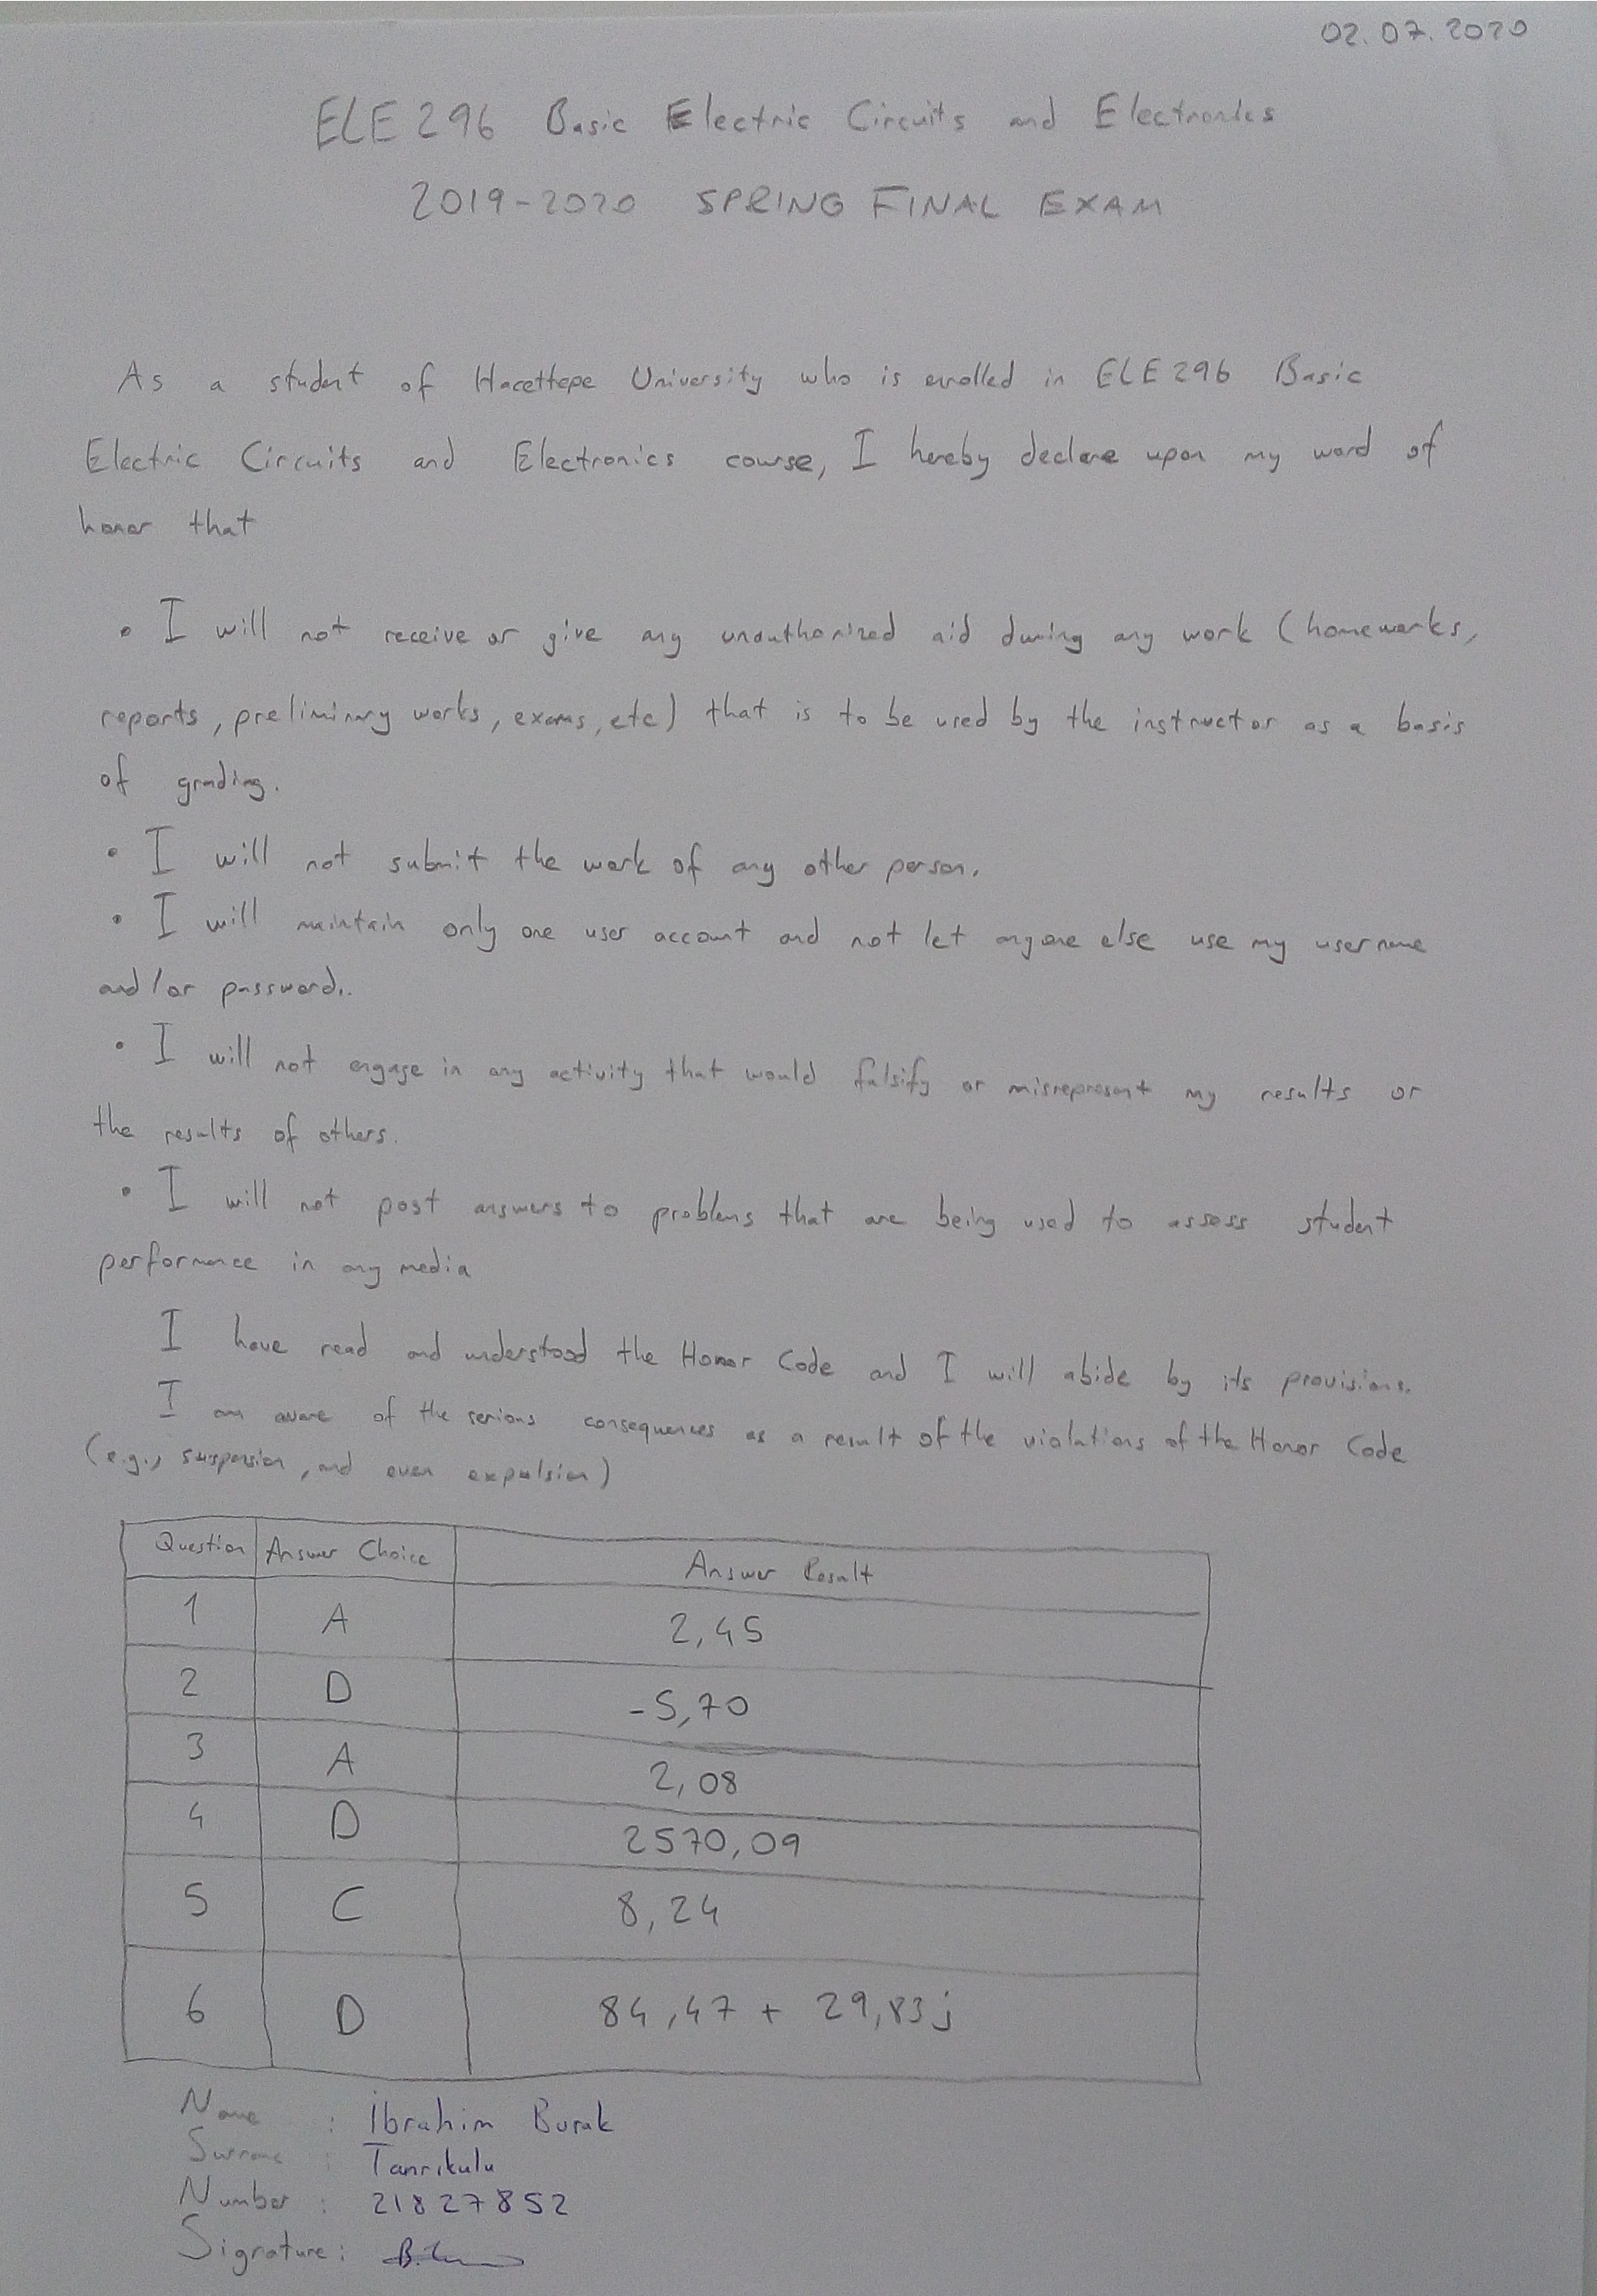 02.07.2020
ELE296 Basic Electric Circuits and Electronics
2019-2020 SPRING FINAL EXAM
As a student of Hacettepe University who is enrolled in ELE296 Basic
Electric Circuits and Electronics course, I hereby declare upon my word of
honor that
• I will not receive or give any unauthorized aid during any work (homeworks,
reports, preliminary works, exams, etc) that is to be used by the instructor as a basis
of grading.
• I will not submit the work of any other person.
• I will maintain only one user account and not let anyone else use my username
and/or password..
• I will not engage in any activity that would falsify or misrepresent my results or
the results of others.
• I will not post answers to problems that are being used to assess student
performance in any media
I have read and understood the Honor Code and I will abide by its provisions.
I am aware of the serious consequences as a result of the violations of the Honor Code
(e.g., suspension, and even expulsion)
Question Answer Choice Answer Result
1 A 2,45
2 D -5,70
3 A 2,08
4 D 2570,09
5 C 8,24
6 D 84,47 + 29,83j
Name : İbrahim Burak
Surname : Tanrikulu
Number : 21827852
Signature :